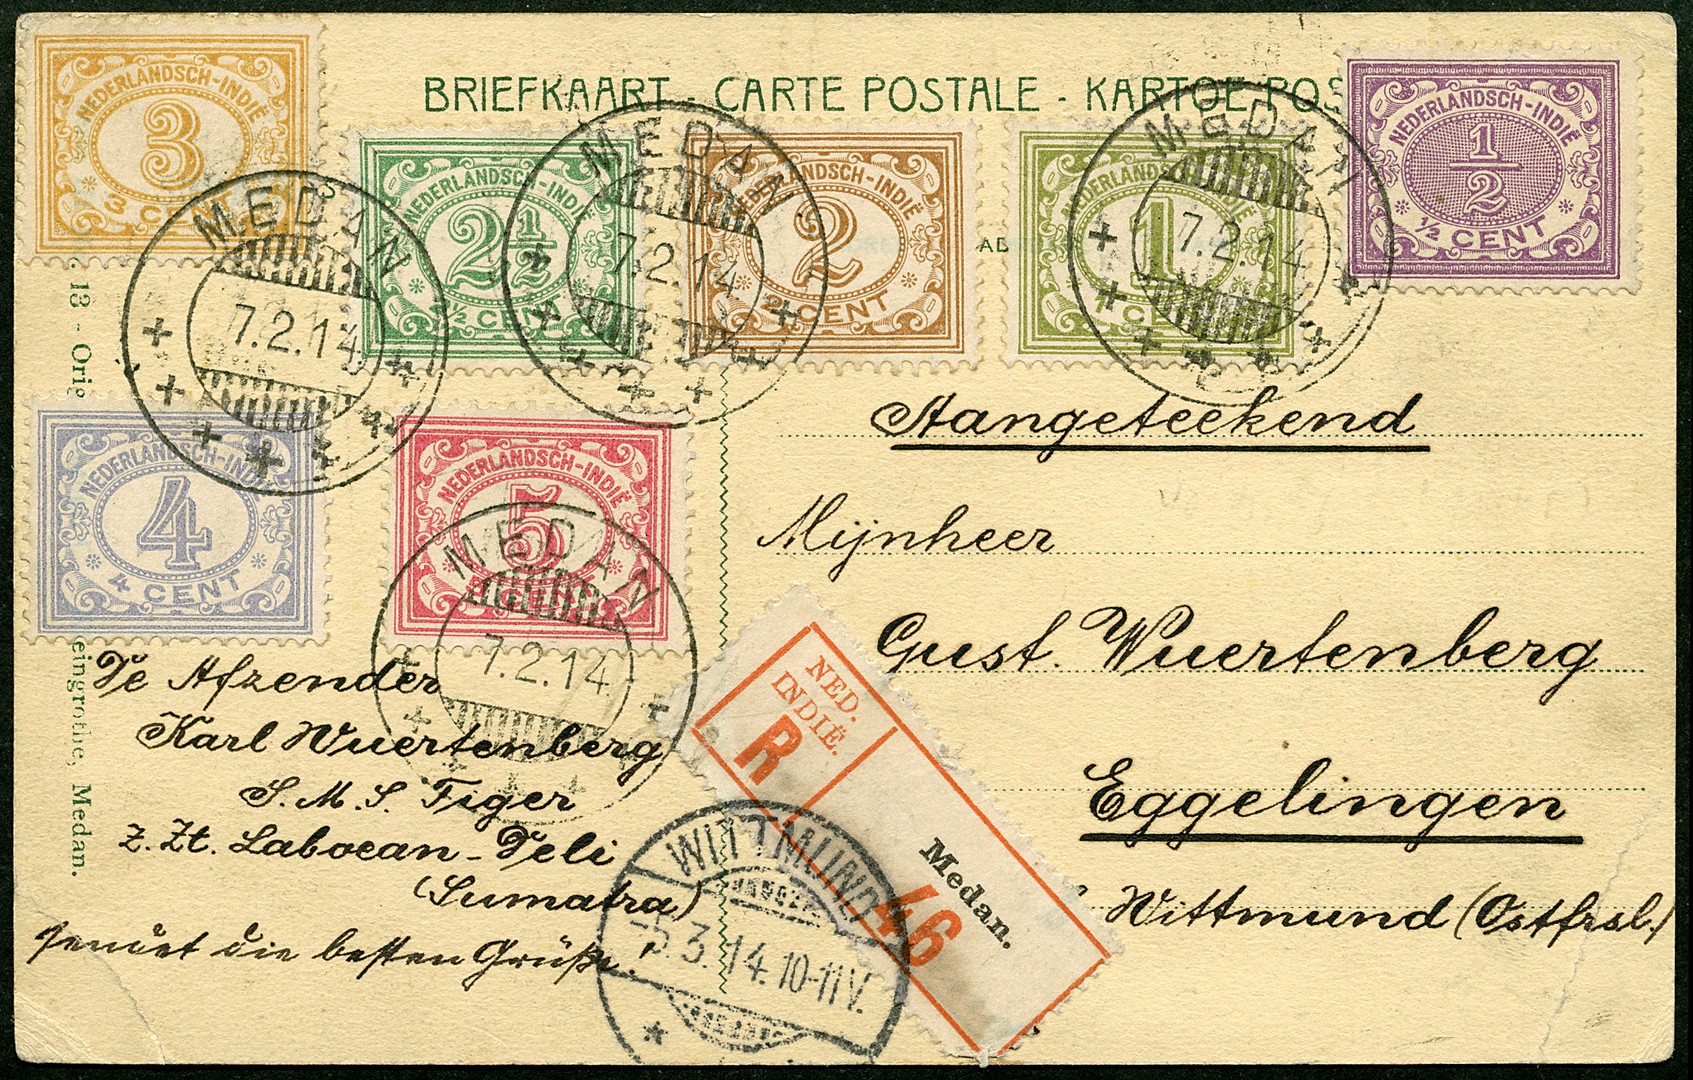 BRIEFKAART - CARTE POSTALE - KARTOE POS
NEDERLANDSCH-INDIË
3
3 CENT
NEDERLANDSCH-INDIË
2½
2½ CENT
NEDERLANDSCH-INDIË
2
2 CENT
NEDERLANDSCH-INDIË
1
1 CENT
NEDERLANDSCH-INDIË
1/2
1/2 CENT
MEDAN
7.2.14
MEDAN
7.2.14
MEDAN
7.2.14
NEDERLANDSCH-INDIË
4
4 CENT
NEDERLANDSCH-INDIË
5
5 CENT
MEDAN
7.2.14
13 - Orig
eingrothe, Medan.
Aangeteekend
Mijnheer
Gust. Wuertenberg
Eggelingen
Wittmund (Ostfrsl.)
De Afzender
Karl Wuertenberg
S. M. S. Tiger
z. Zt. Laboean-Deli
(Sumatra)
sendet die besten Grüße.
NED.
INDIË.
R
46
Medan.
WITTMUND
-5.3.14.10-11V.